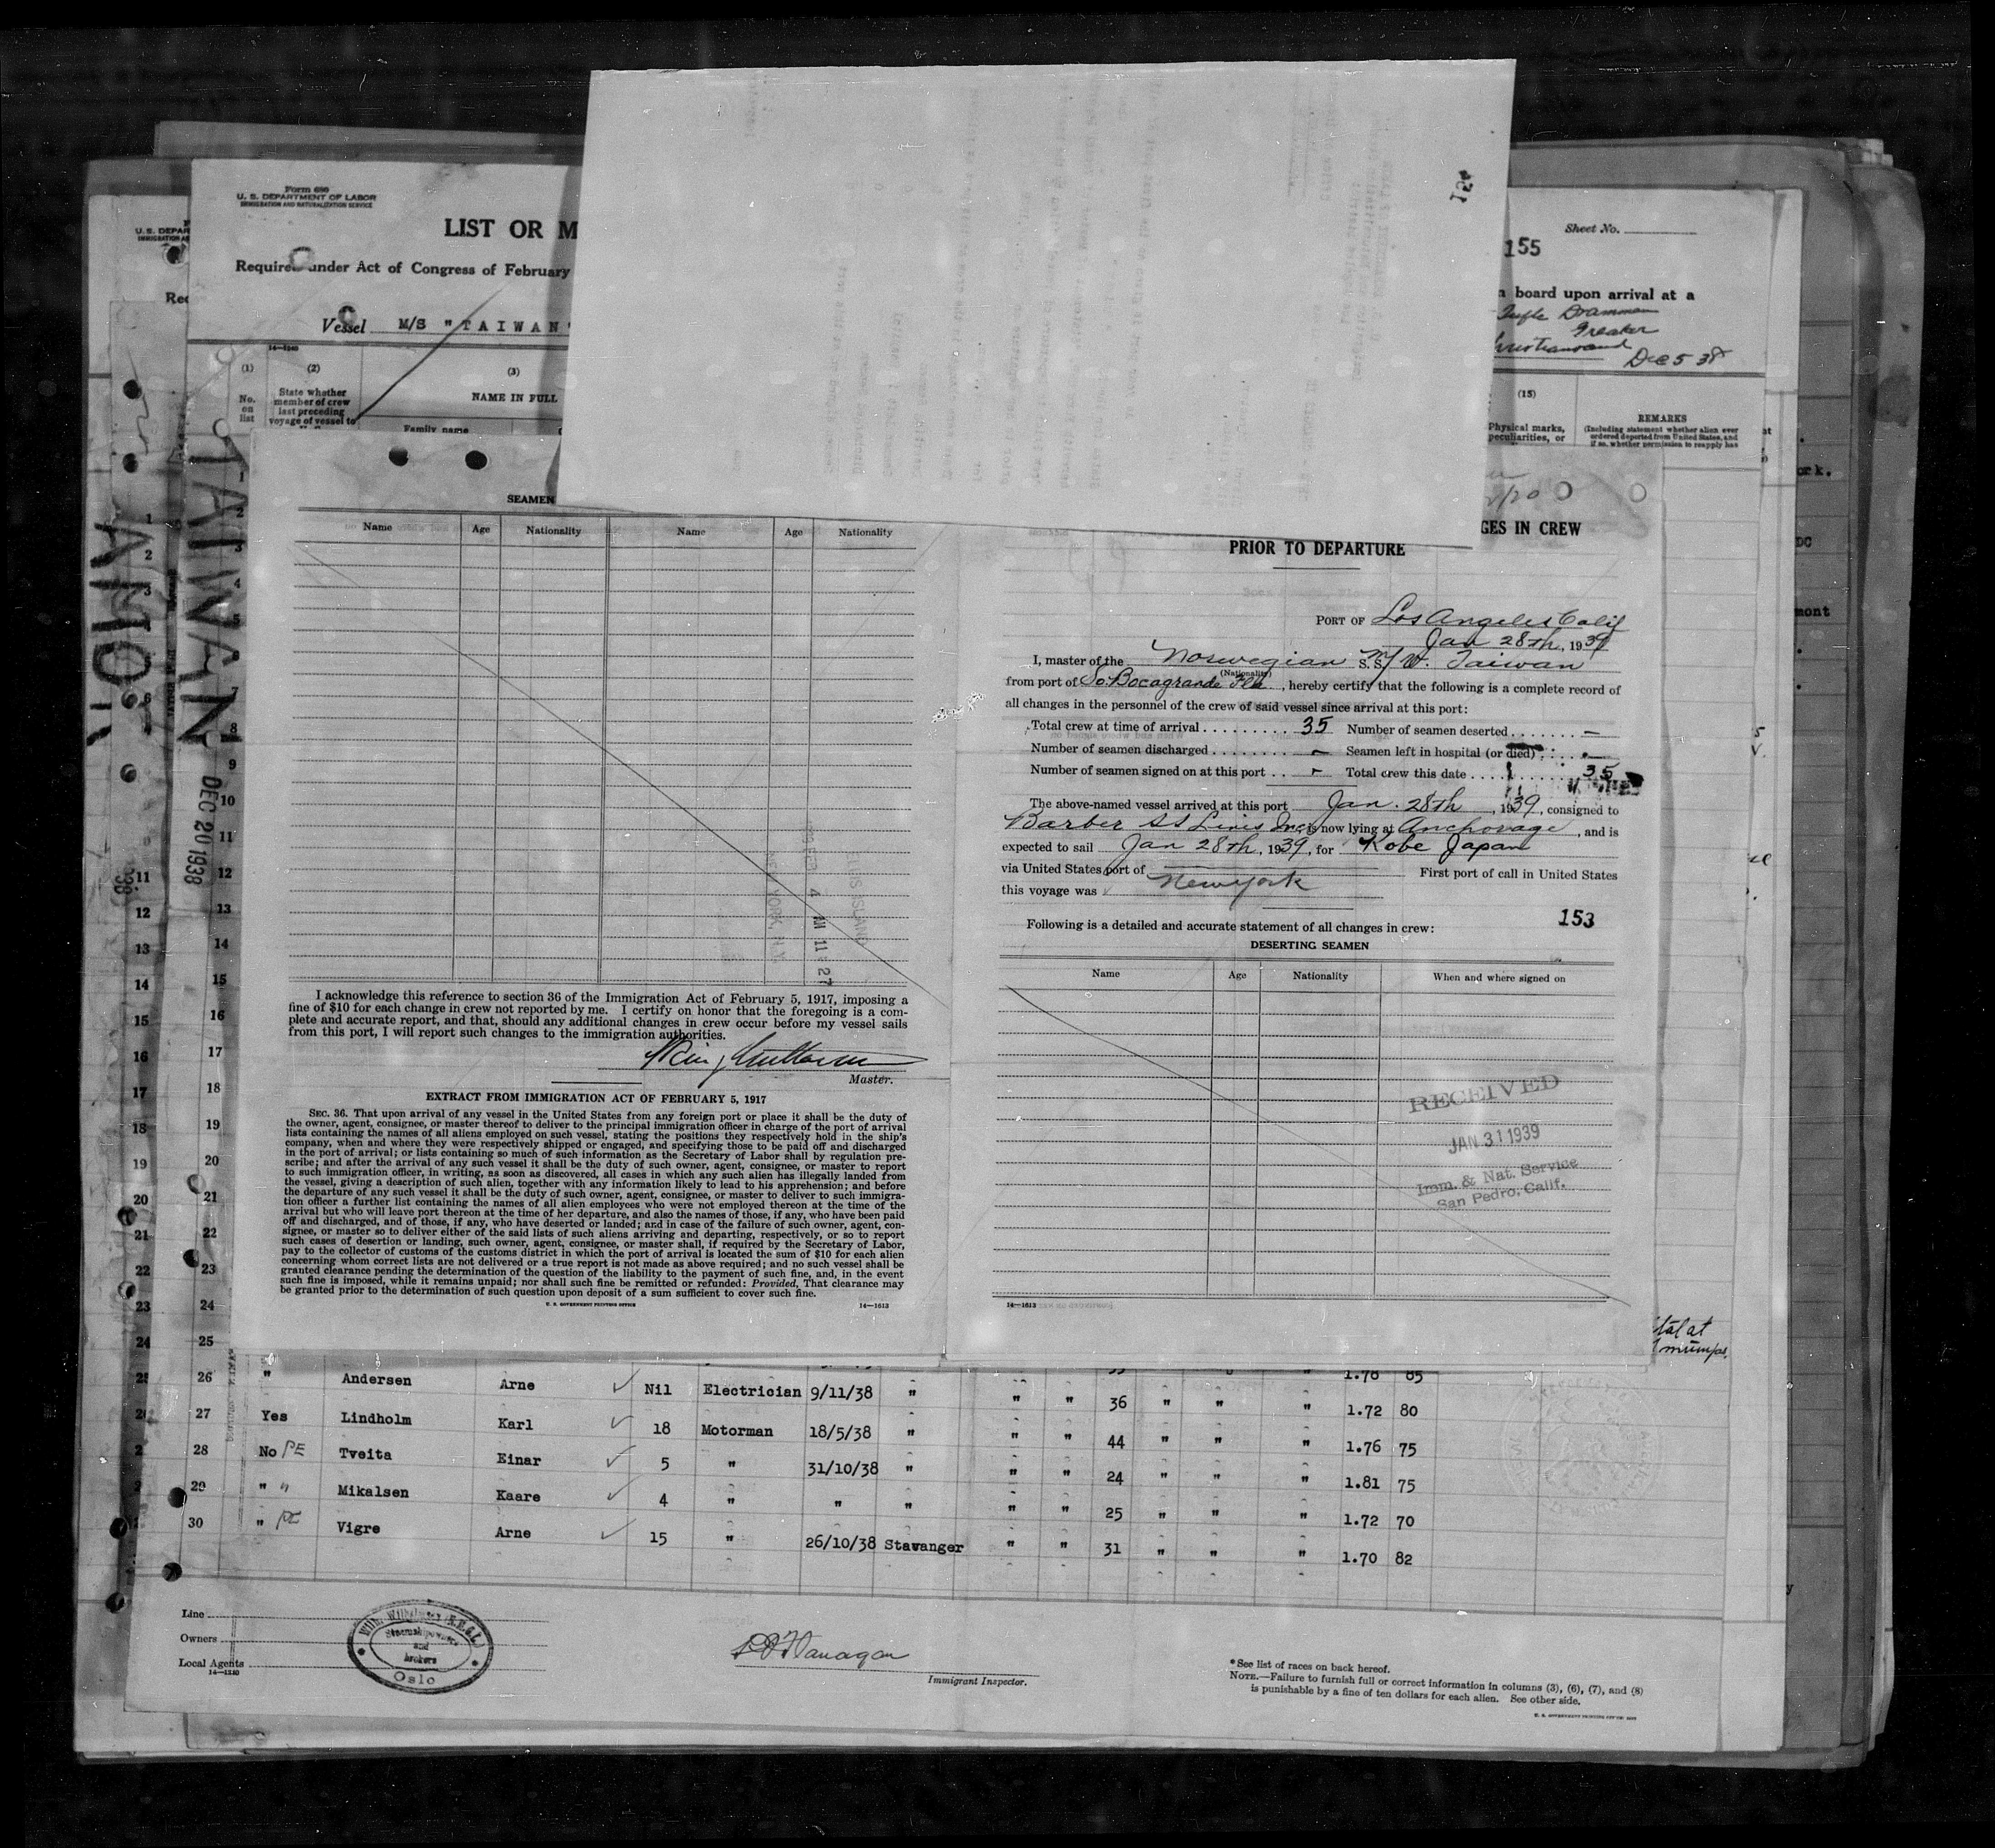 Form 680
U. S. DEPARTMENT OF LABOR
IMMIGRATION AND NATURALIZATION SERVICE
LIST OR M
Required under Act of Congress of February
Vessel M/S "TAIWAN"
14—1240
(1)
No. on list
(2)
State whether member of crew last preceding voyage of vessel to
(3)
NAME IN FULL
Family name
U. S. DEPAR
Sheet No.
155
n board upon arrival at a
Dec 5 38
(15)
Physical marks, peculiarities, or
REMARKS
(Including statement whether alien ever ordered deported from United States, and if so, whether permission to reapply has
TAIWAN
DEC 20 1938
SEAMEN
Name Age Nationality Name Age Nationality
ELLIS ISLAND
NEW YORK, N.Y.
I acknowledge this reference to section 36 of the Immigration Act of February 5, 1917, imposing a
fine of $10 for each change in crew not reported by me. I certify on honor that the foregoing is a com-
plete and accurate report, and that, should any additional changes in crew occur before my vessel sails
from this port, I will report such changes to the immigration authorities.
Master.
EXTRACT FROM IMMIGRATION ACT OF FEBRUARY 5, 1917
SEC. 36. That upon arrival of any vessel in the United States from any foreign port or place it shall be the duty of
the owner, agent, consignee, or master thereof to deliver to the principal immigration officer in charge of the port of arrival
lists containing the names of all aliens employed on such vessel, stating the positions they respectively hold in the ship's
company, when and where they were respectively shipped or engaged, and specifying those to be paid off and discharged
in the port of arrival; or lists containing so much of such information as the Secretary of Labor shall by regulation pre-
scribe; and after the arrival of any such vessel it shall be the duty of such owner, agent, consignee, or master to report
to such immigration officer, in writing, as soon as discovered, all cases in which any such alien has illegally landed from
the vessel, giving a description of such alien, together with any information likely to lead to his apprehension; and before
the departure of any such vessel it shall be the duty of such owner, agent, consignee, or master to deliver to such immigra-
tion officer a further list containing the names of all alien employees who were not employed thereon at the time of the
arrival but who will leave port thereon at the time of her departure, and also the names of those, if any, who have been paid
off and discharged, and of those, if any, who have deserted or landed; and in case of the failure of such owner, agent, con-
signee, or master so to deliver either of the said lists of such aliens arriving and departing, respectively, or so to report
such cases of desertion or landing, such owner, agent, consignee, or master shall, if required by the Secretary of Labor,
pay to the collector of customs of the customs district in which the port of arrival is located the sum of $10 for each alien
concerning whom correct lists are not delivered or a true report is not made as above required; and no such vessel shall be
granted clearance pending the determination of the question of the liability to the payment of such fine, and, in the event
such fine is imposed, while it remains unpaid; nor shall such fine be remitted or refunded: Provided, That clearance may
be granted prior to the determination of such question upon deposit of a sum sufficient to cover such fine.
U. S. GOVERNMENT PRINTING OFFICE 14—1613
GES IN CREW
PRIOR TO DEPARTURE
PORT OF Los Angeles Calif
Jan 28th, 1939
I, master of the Norwegian S.S. M/V. Taiwan
(Nationality)
from port of So. Bocagrande Fla, hereby certify that the following is a complete record of
all changes in the personnel of the crew of said vessel since arrival at this port:
Total crew at time of arrival 35 Number of seamen deserted —
Number of seamen discharged — Seamen left in hospital (or died) —
Number of seamen signed on at this port — Total crew this date 35
The above-named vessel arrived at this port Jan. 28th, 1939, consigned to
Barber SS Lines Inc, is now lying at Anchorage, and is
expected to sail Jan 28th, 1939, for Kobe Japan
via United States port of First port of call in United States
this voyage was New York
153
Following is a detailed and accurate statement of all changes in crew:
DESERTING SEAMEN
Name Age Nationality When and where signed on
RECEIVED
JAN 31 1939
Imm. & Nat. Service
San Pedro, Calif.
14—1613
26 " Andersen Arne Nil Electrician 9/11/38 " " " 36 " " " 1.72 80
27 Yes Lindholm Karl 18 Motorman 18/5/38 " " " 44 " " " 1.76 75
28 No PE Tveita Einar 5 " 31/10/38 " " " 24 " " " 1.81 75
29 " " Mikalsen Kaare 4 " " " " " 25 " " " 1.72 70
30 " PE Vigre Arne 15 " 26/10/38 Stavanger " " 31 " " " 1.70 82
Line
Owners
Local Agents
14—1240
Steamshipowners and brokers
Oslo
Immigrant Inspector.
*See list of races on back hereof.
NOTE.—Failure to furnish full or correct information in columns (3), (6), (7), and (8)
is punishable by a fine of ten dollars for each alien. See other side.